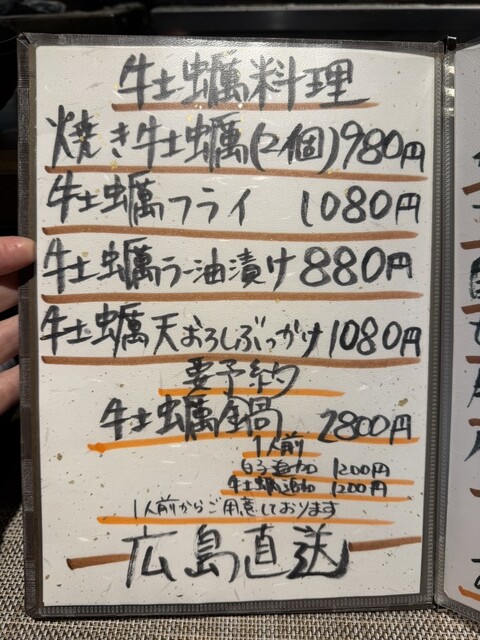 牡蠣料理
焼き牡蠣(2個)980円
牡蠣フライ 1080円
牡蠣ラー油漬け 880円
牡蠣天おろしぶっかけ 1080円
要予約
牡蠣鍋 2800円
1人前
白子追加 1200円
牡蠣追加 1200円
1人前からご用意しております
広島直送